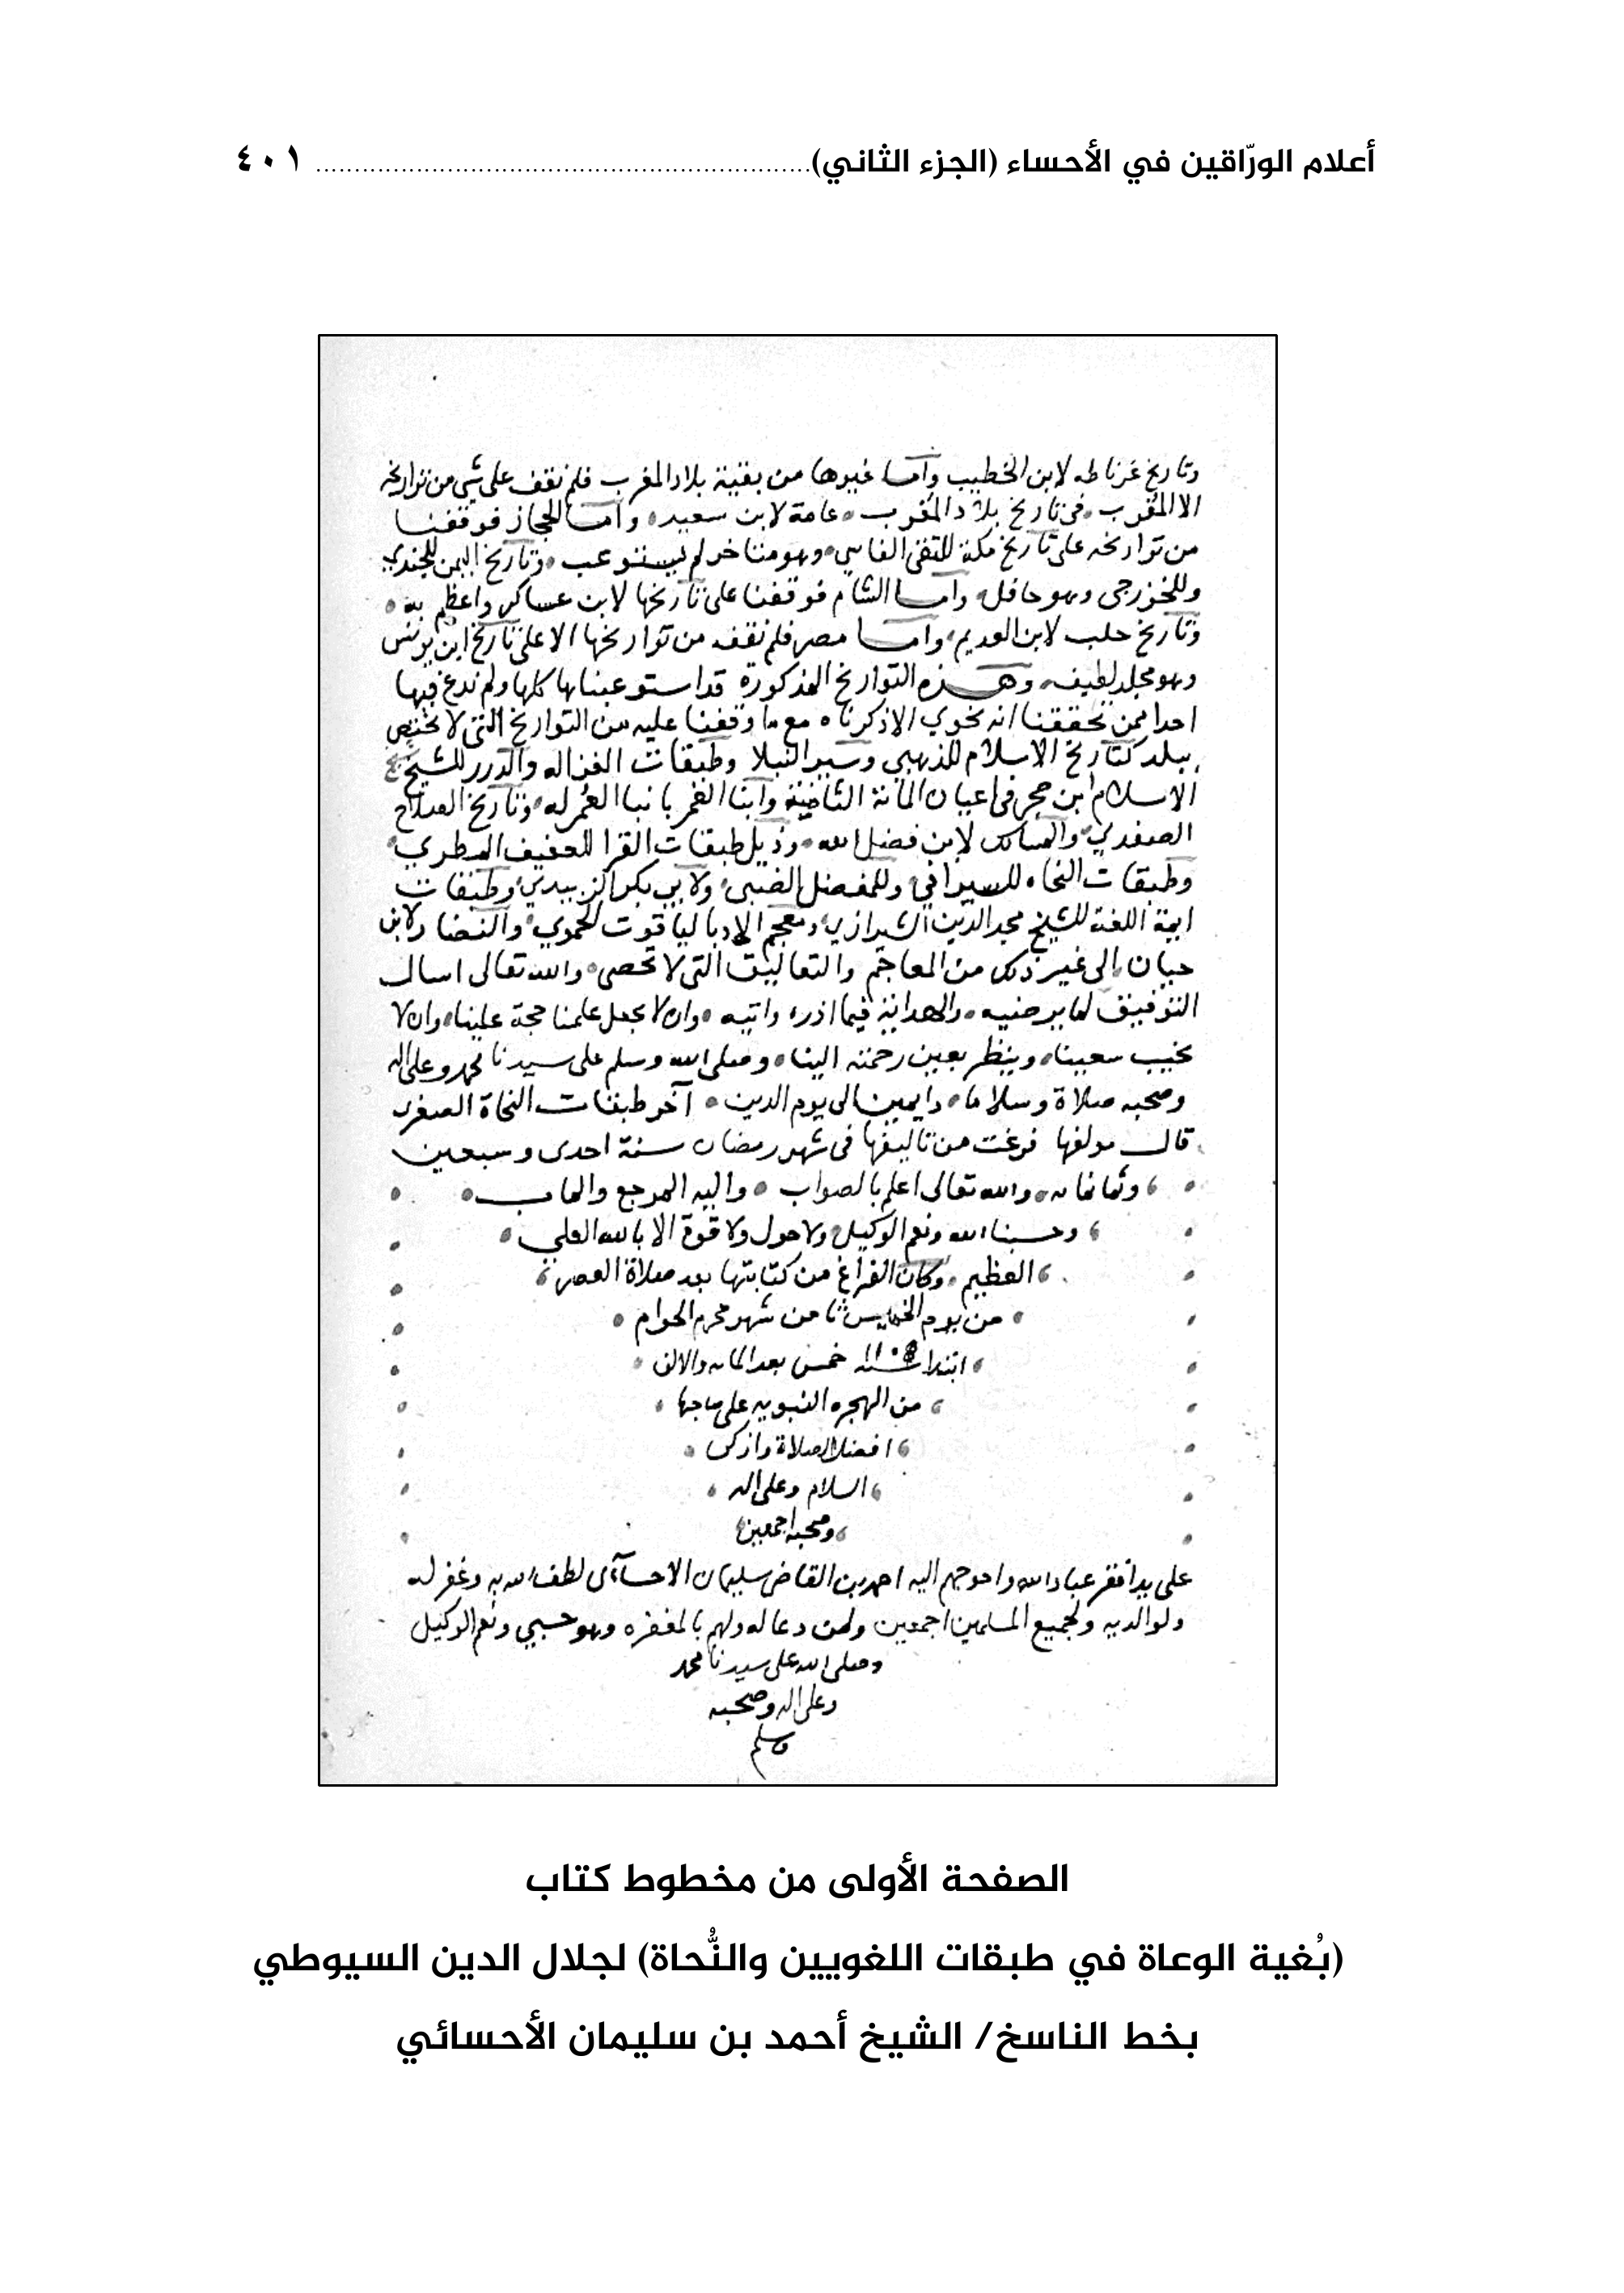 أعلام الورّاقين في الأحساء (الجزء الثاني) ................................................................ ٤٠١
وتاريخ غرناطه لابن الخطيب وأما غيرها من بقية بلاد المغرب فلم نقف على شي من تواريخه
الا المغرب في تاريخ بلاد المغرب عامة لابن سعيد وأما الحجاز فوقفنا
من تواريخه على تاريخ مكة للتقى الفاسي وهو متاخر لم يستوعب وتاريخ اليمن للجندي
وللخزرجى وهو حافل وأما الشام فوقفنا على تاريخها لابن عساكر واعظم به
وتاريخ حلب لابن العديم وأما مصر فلم نقف من تواريخها الا على تاريخ ابن يونس
وهو مجلد لطيف وهذه التواريخ المذكورة قد استوعبناها كلها ولم ندع فيها
احدا ممن تحققنا انه نحوي الا ذكرناه مع ما وقفنا عليه من التواريخ التى لا تختص
ببلد كتاريخ الاسلام للذهبي وسير النبلا وطبقات القرا له والدرر للشيخ
الاسلام ابن حجر في اعيان المائة الثامنة وأنبا الغمر بانبا العمر له وتاريخ الصلاح
الصفدي والمسالك لابن فضل الله وذيل طبقات القرا للعفيف المطري
وطبقات النحاه للسيرافي وللمفضل الضبى ولابي بكر الزبيدي وطبقات
ايمة اللغة للشيخ مجد الدين الشيرازي ومعجم الادبا لياقوت الحموي والنضار لابن
حيان الى غير ذلك من المعاجم والتعاليق التى لا تحصى والله تعالى اسال
التوفيق لما يرضيه والهداية فيما اذره واتيه وان لا يجعل علمنا حجة علينا وان لا
يخيب سعينا وينظر بعين رحمته الينا وصلى الله وسلم على سيدنا محمد وعلى اله
وصحبه صلاة وسلاما دايمين الى يوم الدين آخر طبقات النحاة الصغرى
قال مولفها فرغت من تاليفها فى شهر رمضان سنة احدى وسبعين
وثمانمايه والله تعالى اعلم بالصواب واليه المرجع والماب
وحسبنا الله ونعم الوكيل ولا حول ولا قوة الا بالله العلي
العظيم وكان الفراغ من كتابتها بعد صلاة العصر
من يوم الخميس ثامن شهر محرم الحرام
ابتدا سنه خمس بعد المايه والالف
من الهجره النبويه على صاحبها
افضل الصلاة وازكى
السلام وعلى اله
وصحبه اجمعين
على يد افقر عباد الله واحوجهم اليه احمد بن القاضى سليمان الاحسآءى لطف الله به وغفر له
ولوالديه ولجميع المسلمين اجمعين ولمن دعا له ولهم بالمغفره وهو حسبي ونعم الوكيل
وصلى الله على سيدنا محمد
وعلى اله وصحبه
وسلم
الصفحة الأولى من مخطوط كتاب
(بُغية الوعاة في طبقات اللغويين والنُّحاة) لجلال الدين السيوطي
بخط الناسخ/ الشيخ أحمد بن سليمان الأحسائي